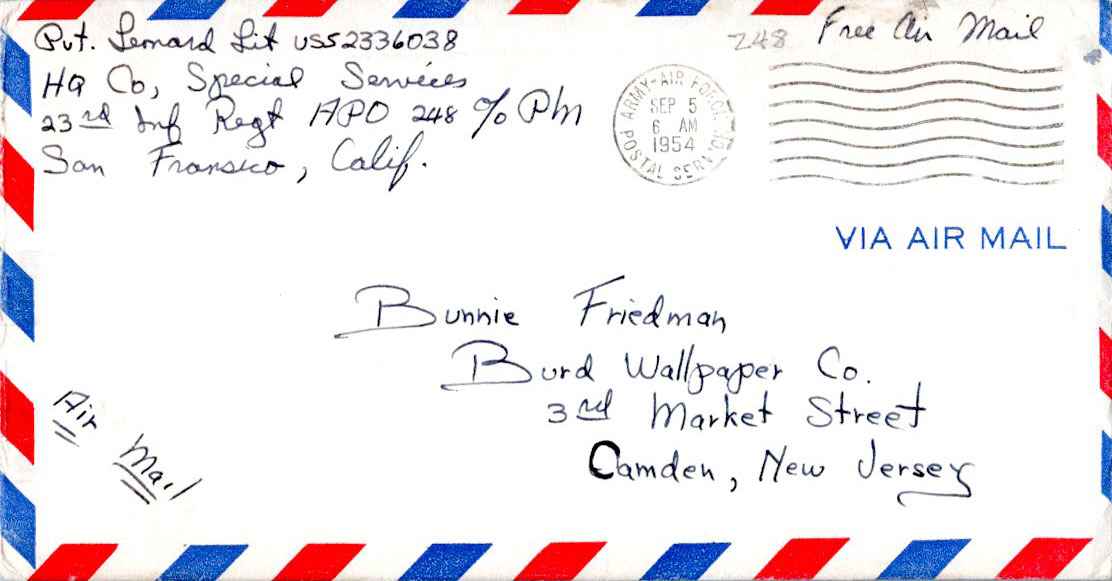 Pvt. Lenard Lit US52336038
HQ Co, Special Services
23rd Inf Regt APO 248 c/o PM
San Fransico, Calif.
248
Free Air Mail
ARMY-AIR FORCE
SEP 5
6 AM
1954
POSTAL SERVICE
VIA AIR MAIL
Bunnie Friedman
Burd Wallpaper Co.
3rd Market Street
Camden, New Jersey
Air Mail